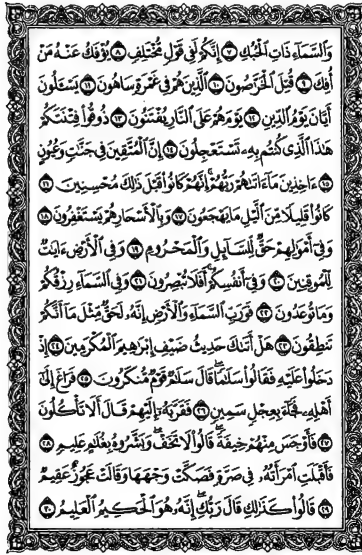 وَالسَّمَاءِ ذَاتِ الْحُبُكِ ٧ إِنَّكُمْ لَفِي قَوْلٍ مُّخْتَلِفٍ ٨ يُؤْفَكُ عَنْهُ مَنْ
أُفِكَ ٩ قُتِلَ الْخَرَّاصُونَ ١٠ الَّذِينَ هُمْ فِي غَمْرَةٍ سَاهُونَ ١١ يَسْأَلُونَ
أَيَّانَ يَوْمُ الدِّينِ ١٢ يَوْمَ هُمْ عَلَى النَّارِ يُفْتَنُونَ ١٣ ذُوقُوا فِتْنَتَكُمْ
هَٰذَا الَّذِي كُنتُم بِهِ تَسْتَعْجِلُونَ ١٤ إِنَّ الْمُتَّقِينَ فِي جَنَّاتٍ وَعُيُونٍ
١٥ ءَاخِذِينَ مَا ءَاتَاهُمْ رَبُّهُمْ إِنَّهُمْ كَانُوا قَبْلَ ذَٰلِكَ مُحْسِنِينَ ١٦
كَانُوا قَلِيلًا مِّنَ الَّيْلِ مَا يَهْجَعُونَ ١٧ وَبِالْأَسْحَارِ هُمْ يَسْتَغْفِرُونَ ١٨
وَفِي أَمْوَالِهِمْ حَقٌّ لِّلسَّائِلِ وَالْمَحْرُومِ ١٩ وَفِي الْأَرْضِ ءَايَاتٌ
لِّلْمُوقِنِينَ ٢٠ وَفِي أَنفُسِكُمْ أَفَلَا تُبْصِرُونَ ٢١ وَفِي السَّمَاءِ رِزْقُكُمْ
وَمَا تُوعَدُونَ ٢٢ فَوَرَبِّ السَّمَاءِ وَالْأَرْضِ إِنَّهُ لَحَقٌّ مِّثْلَ مَا أَنَّكُمْ
تَنطِقُونَ ٢٣ هَلْ أَتَاكَ حَدِيثُ ضَيْفِ إِبْرَاهِيمَ الْمُكْرَمِينَ ٢٤ إِذْ
دَخَلُوا عَلَيْهِ فَقَالُوا سَلَامًا قَالَ سَلَامٌ قَوْمٌ مُّنكَرُونَ ٢٥ فَرَاغَ إِلَىٰ
أَهْلِهِ فَجَاءَ بِعِجْلٍ سَمِينٍ ٢٦ فَقَرَّبَهُ إِلَيْهِمْ قَالَ أَلَا تَأْكُلُونَ
٢٧ فَأَوْجَسَ مِنْهُمْ خِيفَةً قَالُوا لَا تَخَفْ وَبَشَّرُوهُ بِغُلَامٍ عَلِيمٍ ٢٨
فَأَقْبَلَتِ امْرَأَتُهُ فِي صَرَّةٍ فَصَكَّتْ وَجْهَهَا وَقَالَتْ عَجُوزٌ عَقِيمٌ
٢٩ قَالُوا كَذَٰلِكِ قَالَ رَبُّكِ إِنَّهُ هُوَ الْحَكِيمُ الْعَلِيمُ ٣٠